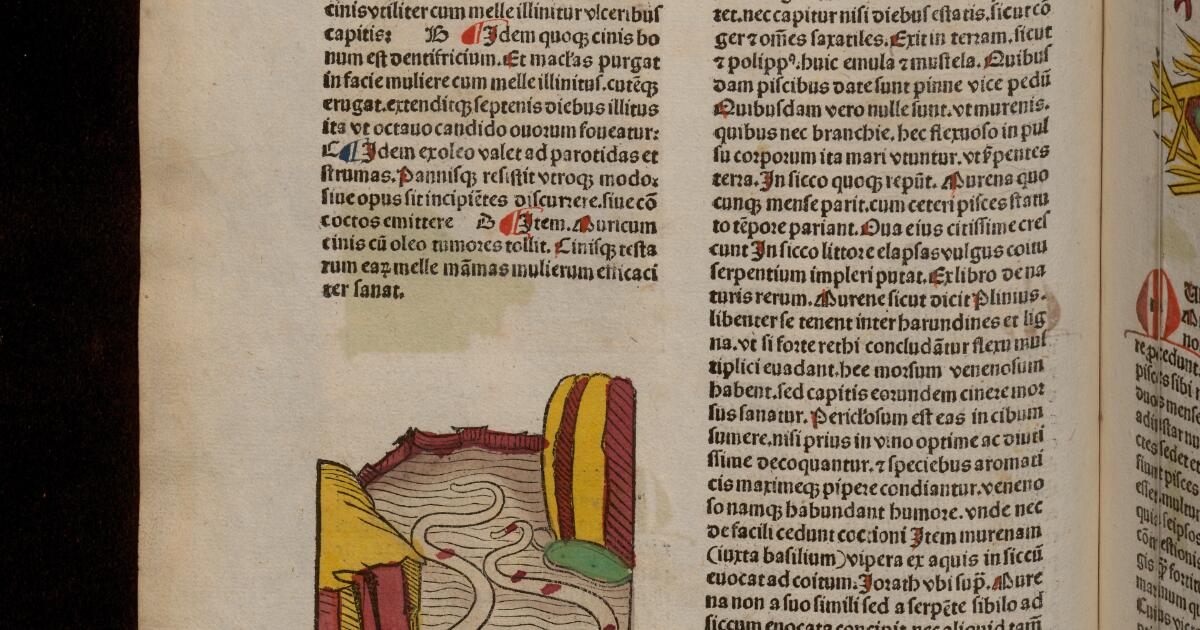 cinis vtiliter cum melle illinitur vlceribus
capitis: B Idem quoqꝫ cinis bo
num est dentifricium. Et maclas purgat
in facie muliere cum melle illinitus. cutēqꝫ
erugat. extenditqꝫ septenis diebus illitus
ita vt octauo candido ouorum foueatur:
C Idem ex oleo valet ad parotidas et
strumas. Pannisqꝫ resistit vtroqꝫ modo:
siue opus sit incipiētes discutere. siue cō
coctos emittere D Item. Muricum
cinis cū oleo tumores tollit. Cinisqꝫ testa
rum eaꝝ melle māmas mulierum efficaci
ter sanat.
tet. nec capitur nisi diebus estatis. sicut cō
ger ⁊ om̄es saxatiles. Exit in terram. sicut
⁊ polippꝰ. huic emula ⁊ mustela. Quibus
dam piscibus date sunt pinne vice pedū
Quibusdam vero nulle sunt. vt murenis.
quibus nec branchie. hec flexuoso in pul
su corporum ita mari vtuntur. vt ẜpentes
terra. In sicco quoqꝫ repūt. Murena quo
cunqꝫ mense parit. cum ceteri pisces statu
to tēpore pariant. Oua eius citissime cres
cunt In sicco littore elapsas vulgus coitu
serpentium impleri putat. Ex libro de na
turis rerum. Murene sicut dicit Plinius.
libenter se tenent inter harundines et lig
na. vt si forte rethi concludātur flexu mul
tiplici euadant. hee morsum venenosum
habent. sed capitis eorundem cinere mor
sus sanatur. Periclosum est eas in cibum
sumere. nisi prius in vino optime ac diuti
ssime decoquantur. ⁊ speciebus aromati
cis maximeqꝫ pipere condiantur. veneno
so namqꝫ habundant humore. vnde nec
de facili cedunt coctioni Item murenam
(iuxta basilium) vipera ex aquis in siccū
euocat ad coitum. Jorath vbi sup̄. Mure
na non a suo simili sed a serpēte sibilo ad
siccum euocata concipit nec aliquid tam